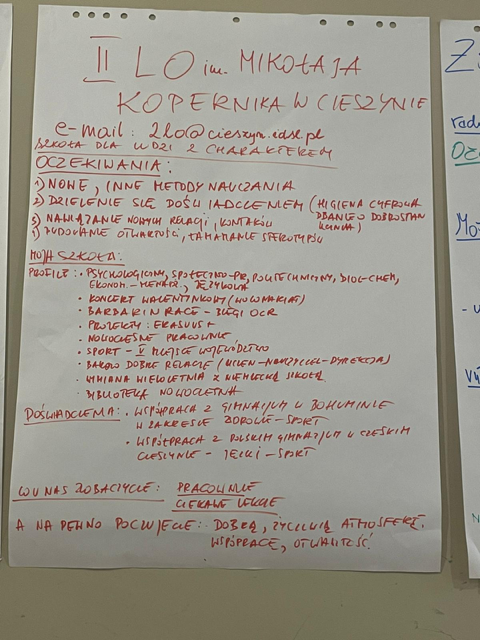 II LO im. MIKOŁAJA
KOPERNIKA W CIESZYNIE
e-mail: 2lo@cieszyn.edu.pl
SZKOŁA DLA LUDZI Z CHARAKTEREM
OCZEKIWANIA:
1) NOWE, INNE METODY NAUCZANIA
2) DZIELENIE SIĘ DOŚWIADCZENIEM (HIGIENA CYFROWA
DBANIE O DOBROSTAN
UCZNIA)
3) NAWIĄZANIE NOWYCH RELACJI, KONTAKÓW
4) BUDOWANIE OTWARTOŚCI, ŁAMANIE STEROTYPÓW
MOJA SZKOŁA:
PROFILE: • PSYCHOLOGICZNY, SPOŁECZNO-PR, POLITECHNICZNY, BIOL-CHEM,
EKONOM.-MENADŻ., JĘZYKOWA
• KONCERT WALENTYNKOWY
• BARBARIAN RACE - BIEGI OCR
• PROJEKTY: ERASMUS+
• NOWOCZESNE PRACOWNIE
• SPORT - MIEJSCE WOJEWÓDZTWO
• BARDZO DOBRE RELACJE (UCZEŃ-NAUCZYCIEL-DYREKCJA)
• WYMIANA WIELOLETNIA Z NIEMIECKĄ SZKOŁĄ
• BIBLIOTEKA NOWOCZESNA
DOŚWIADCZENIA: • WSPÓŁPRACA Z GIMNAZJUM W BOHUMINIE
W ZAKRESIE ZDROWIE-SPORT
• WSPÓŁPRACA Z POLSKIM GIMNAZJUM W CZESKIM
CIESZYNIE - JĘZYKI - SPORT
CO U NAS ZOBACZYCIE: PRACOWNIE
CIEKAWE LEKCJE
A NA PEWNO POCZUJECIE: DOBRĄ, ŻYCZLIWĄ ATMOSFERĘ,
WSPÓŁPRACĘ, OTWARTOŚĆ.